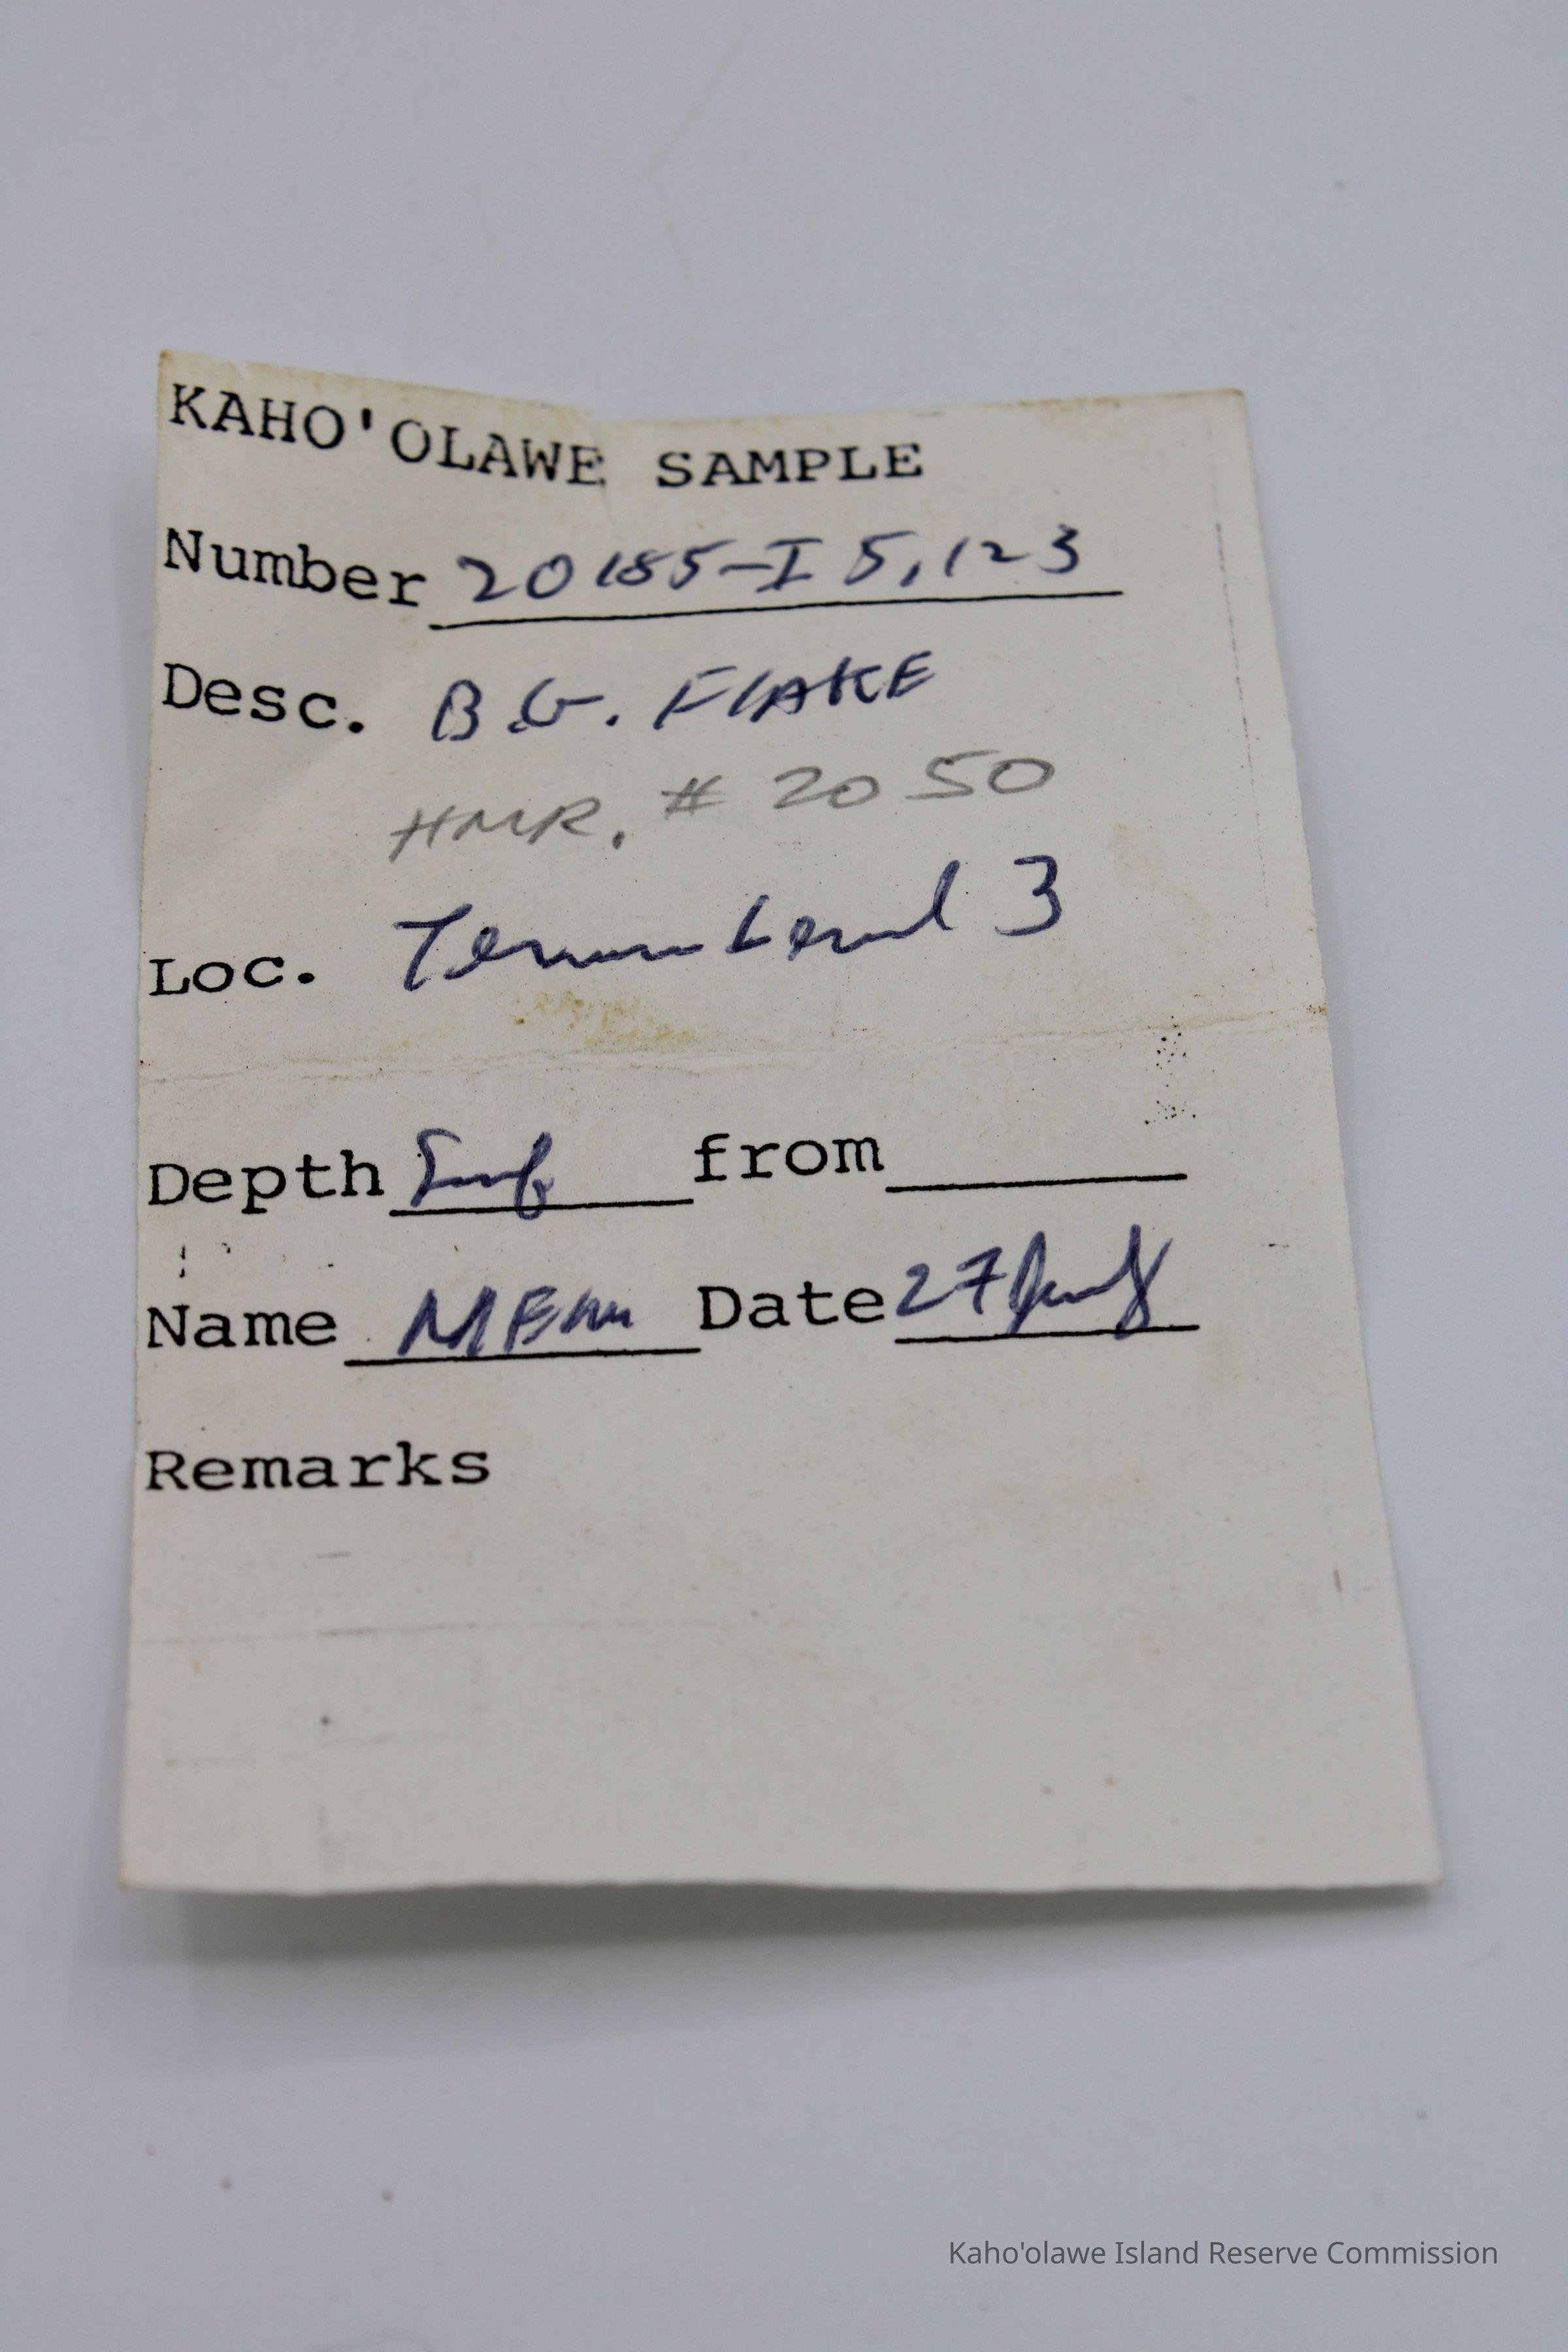 KAHO'OLAWE SAMPLE
Number 20185-I 5,123
Desc. B.G. FLAKE
HMR. # 2050
Loc. Level 3
Depth Surf from
Name Date 27
Remarks
Kaho'olawe Island Reserve Commission